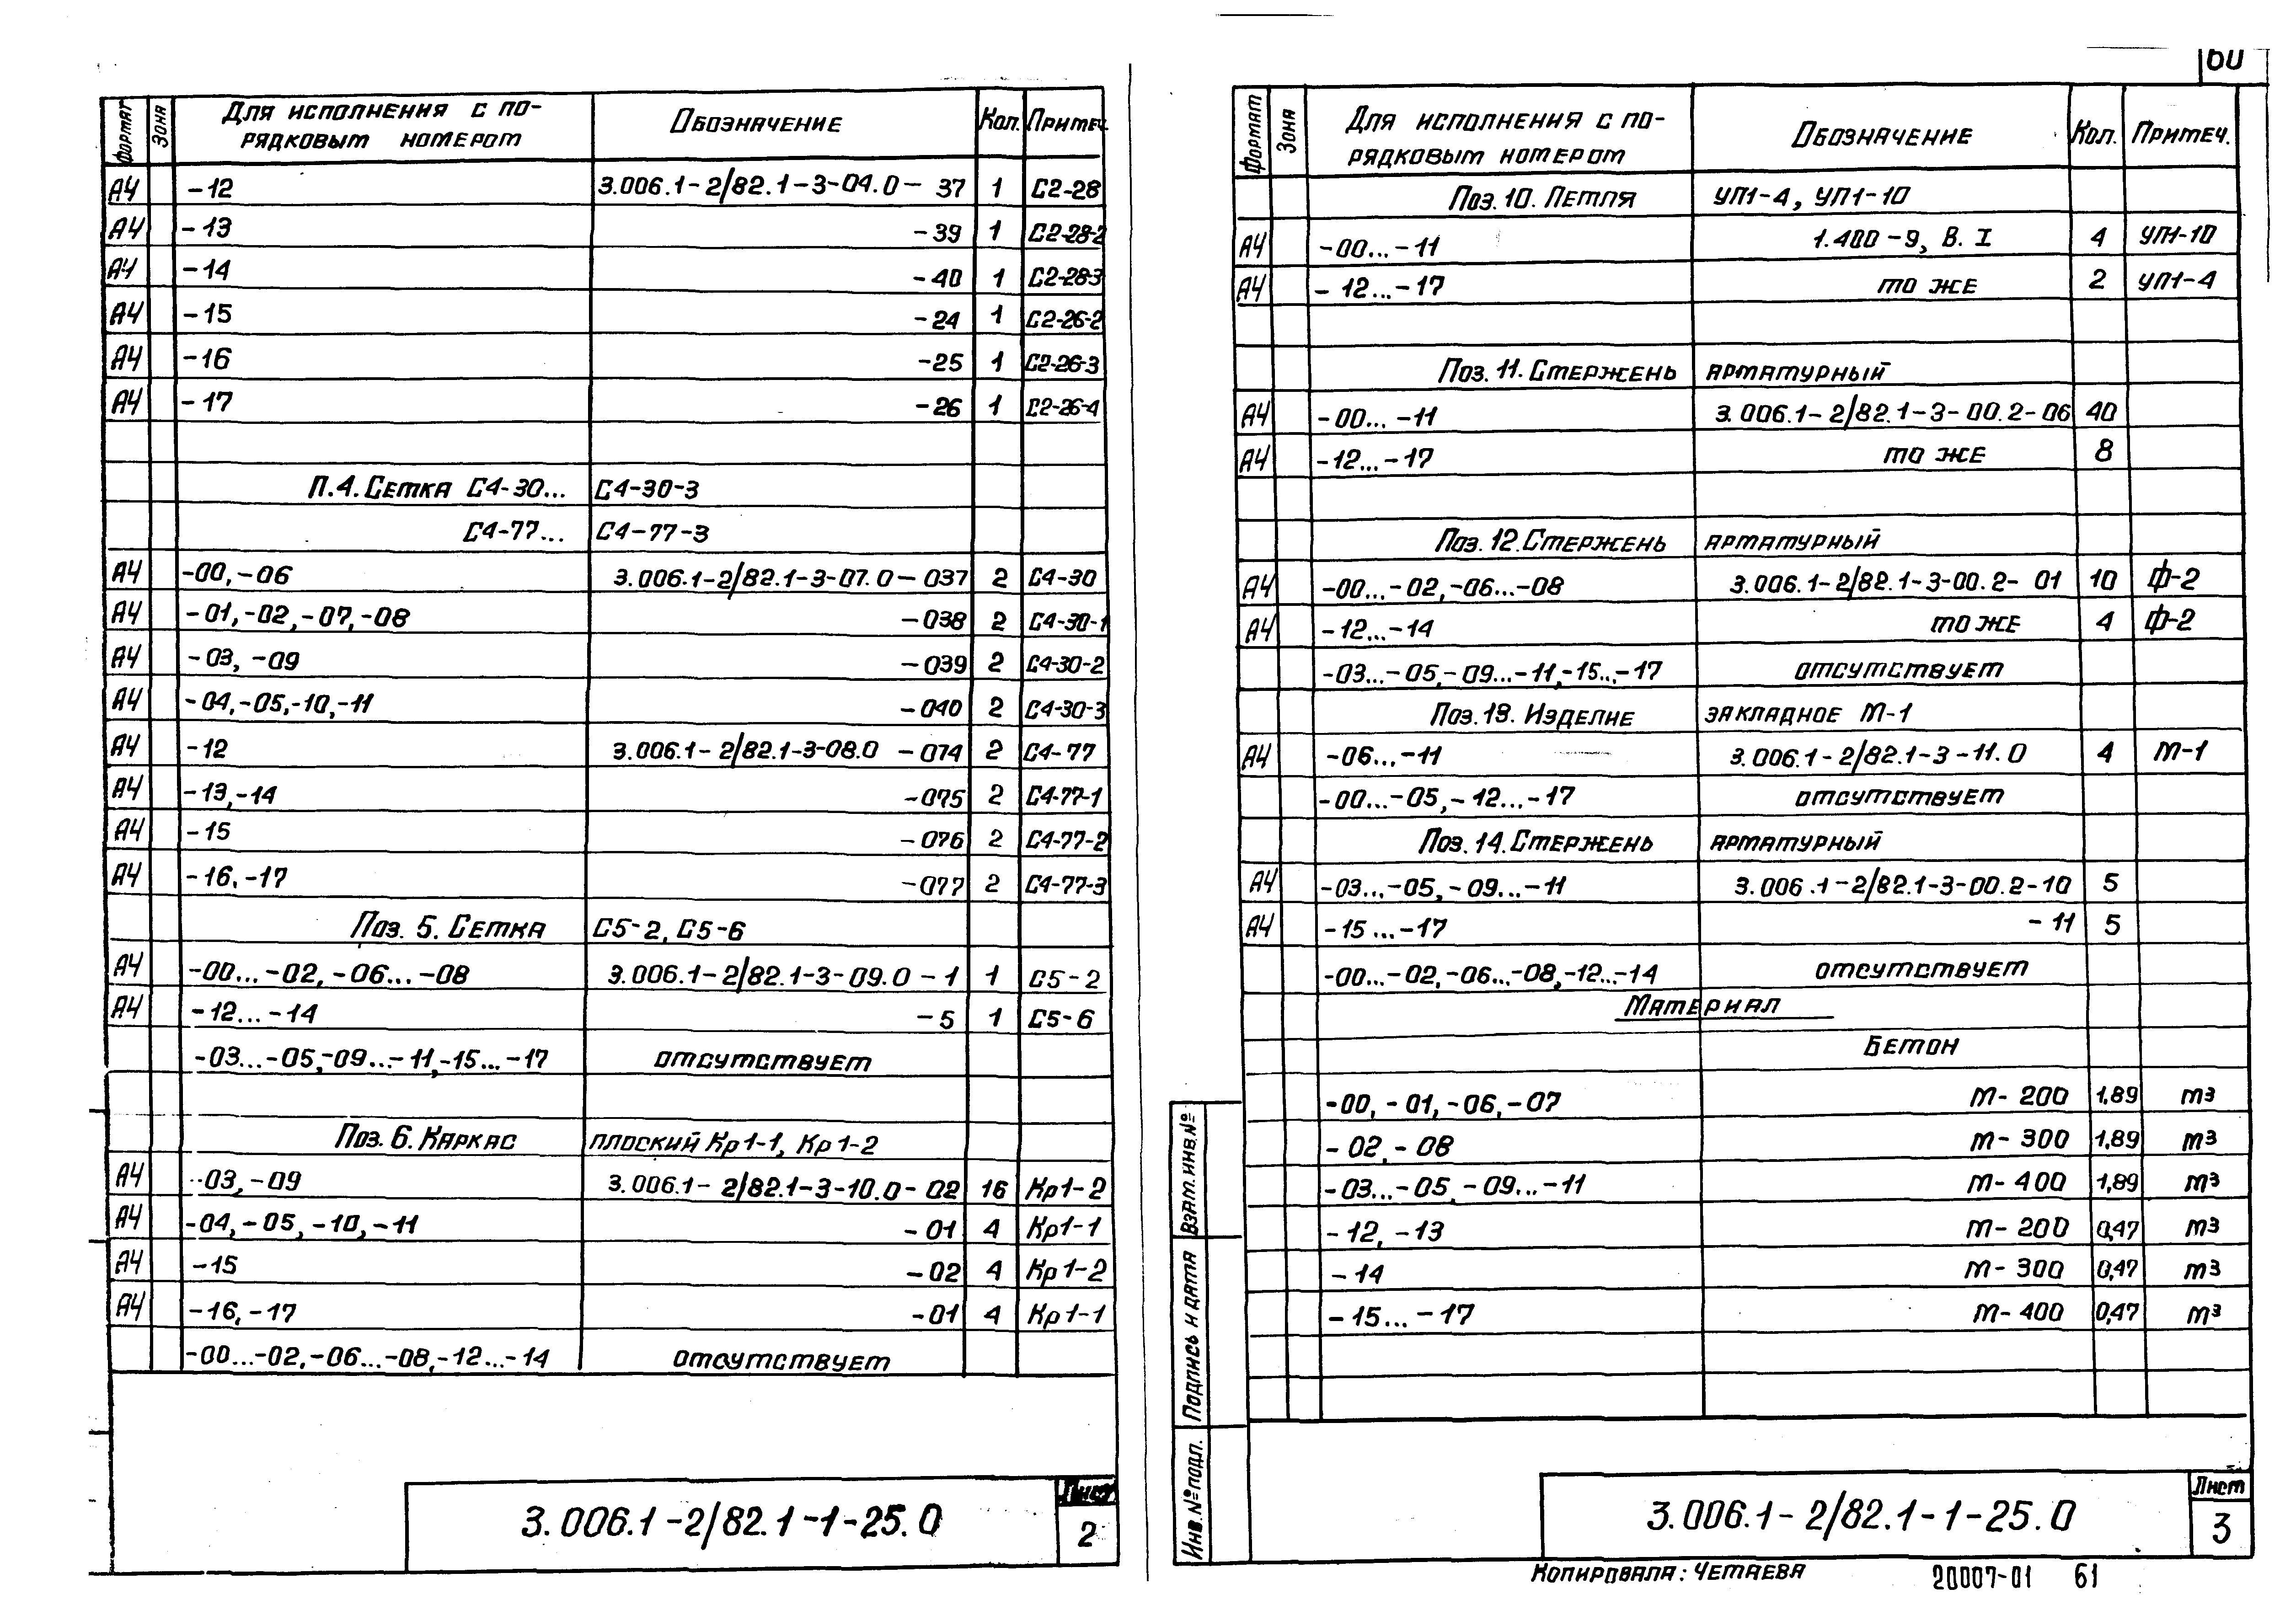 60
Формат Зона Для исполнения с по- Обозначение Кол. Примеч.
рядковым номером
А4 -12 3.006.1-2/82.1-3-04.0- 37 1 С2-28
А4 -13 -39 1 С2-28-2
А4 -14 -40 1 С2-28-3
А4 -15 -24 1 С2-26-2
А4 -16 -25 1 С2-26-3
А4 -17 -26 1 С2-26-4
П.4. Сетка С4-30... С4-30-3
С4-77... С4-77-3
А4 -00,-06 3.006.1-2/82.1-3-07.0-037 2 С4-30
А4 -01,-02,-07,-08 -038 2 С4-30-1
А4 -03, -09 -039 2 С4-30-2
А4 -04,-05,-10,-11 -040 2 С4-30-3
А4 -12 3.006.1-2/82.1-3-08.0 -074 2 С4-77
А4 -13,-14 -075 2 С4-77-1
А4 -15 -076 2 С4-77-2
А4 -16,-17 -077 2 С4-77-3
Поз. 5. Сетка С5-2, С5-6
А4 -00...-02, -06...-08 3.006.1-2/82.1-3-09.0-1 1 С5-2
А4 -12...-14 -5 1 С5-6
-03...-05,-09...-11,-15...-17 отсутствует
Поз. 6. Каркас плоский Кр1-1, Кр1-2
А4 -03,-09 3.006.1-2/82.1-3-10.0-02 16 Кр1-2
А4 -04,-05,-10,-11 -01 4 Кр1-1
А4 -15 -02 4 Кр1-2
А4 -16,-17 -01 4 Кр1-1
-00...-02,-06...-08,-12...-14 отсутствует
3.006.1-2/82.1-1-25.0
Лист
2
Формат Зона Для исполнения с по- Обозначение Кол. Примеч.
рядковым номером
Поз. 10. Петля УП1-4, УП1-10
А4 -00...-11 1.400-9, В. I 4 УП1-10
А4 -12...-17 то же 2 УП1-4
Поз. 11. Стержень арматурный
А4 -00...-11 3.006.1-2/82.1-3-00.2-06 40
А4 -12...-17 то же 8
Поз. 12. Стержень арматурный
А4 -00...-02,-06...-08 3.006.1-2/82.1-3-00.2- 01 10 Ф-2
А4 -12...-14 то же 4 Ф-2
-03...-05,-09...-11,-15...-17 отсутствует
Поз. 13. Изделие закладное М-1
А4 -06...-11 3.006.1-2/82.1-3-11.0 4 М-1
-00...-05,-12...-17 отсутствует
Поз. 14. Стержень арматурный
А4 -03...-05,-09...-11 3.006.1-2/82.1-3-00.2-10 5
А4 -15...-17 -11 5
-00...-02,-06...-08,-12...-14 отсутствует
Материал
Бетон
-00, -01, -06, -07 М-200 1,89 м3
-02,-08 М-300 1,89 м3
-03...-05,-09...-11 М-400 1,89 м3
-12, -13 М-200 0,47 м3
-14 М-300 0,47 м3
-15...-17 М-400 0,47 м3
Взам. инв.№
Подпись и дата
Инв.№ подл.
3.006.1-2/82.1-1-25.0
Лист
3
Копировала: Четаева
20007-01 61